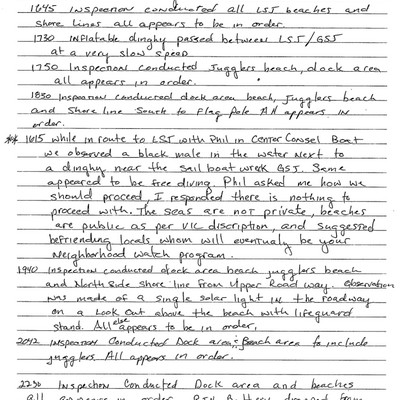 1645 Inspection conducted all LSJ beaches and
shore lines all appears to be in order.
1730 Inflatable dinghy passed between LSJ/GSJ
at a very slow speed
1750 Inspection conducted Jugglers beach, dock area
all appears in order.
1830 Inspection conducted dock area beach, Jugglers beach
and shore line South to Flag Pole All appears IN
order.
1615 while in route to LSJ with Phil in Center Consel Boat
we observed a black male in the water next to
a dinghy near the sail boat wreck GSJ. Same
appeared to be free diving. Phil asked me how we
should proceed, I responded there is nothing to
proceed with. The seas are not private, beaches
are public as per VIC discription, and suggested
befriending locals whom will eventualy be your
Neighborhood watch program.
1940 Inspection conducted dock area beach jugglers beach
and North Side shore line from Upper Road way. Observation
was made of a single solar light IN the roadway
on a Look Out above the beach with lifeguard
stand. All else appears to be in order,
2042 Inspection Conducted Dock area; Beach area to include
jugglers. All appears in order.
2230 Inspection Conducted Dock area and beaches
all appears in order.